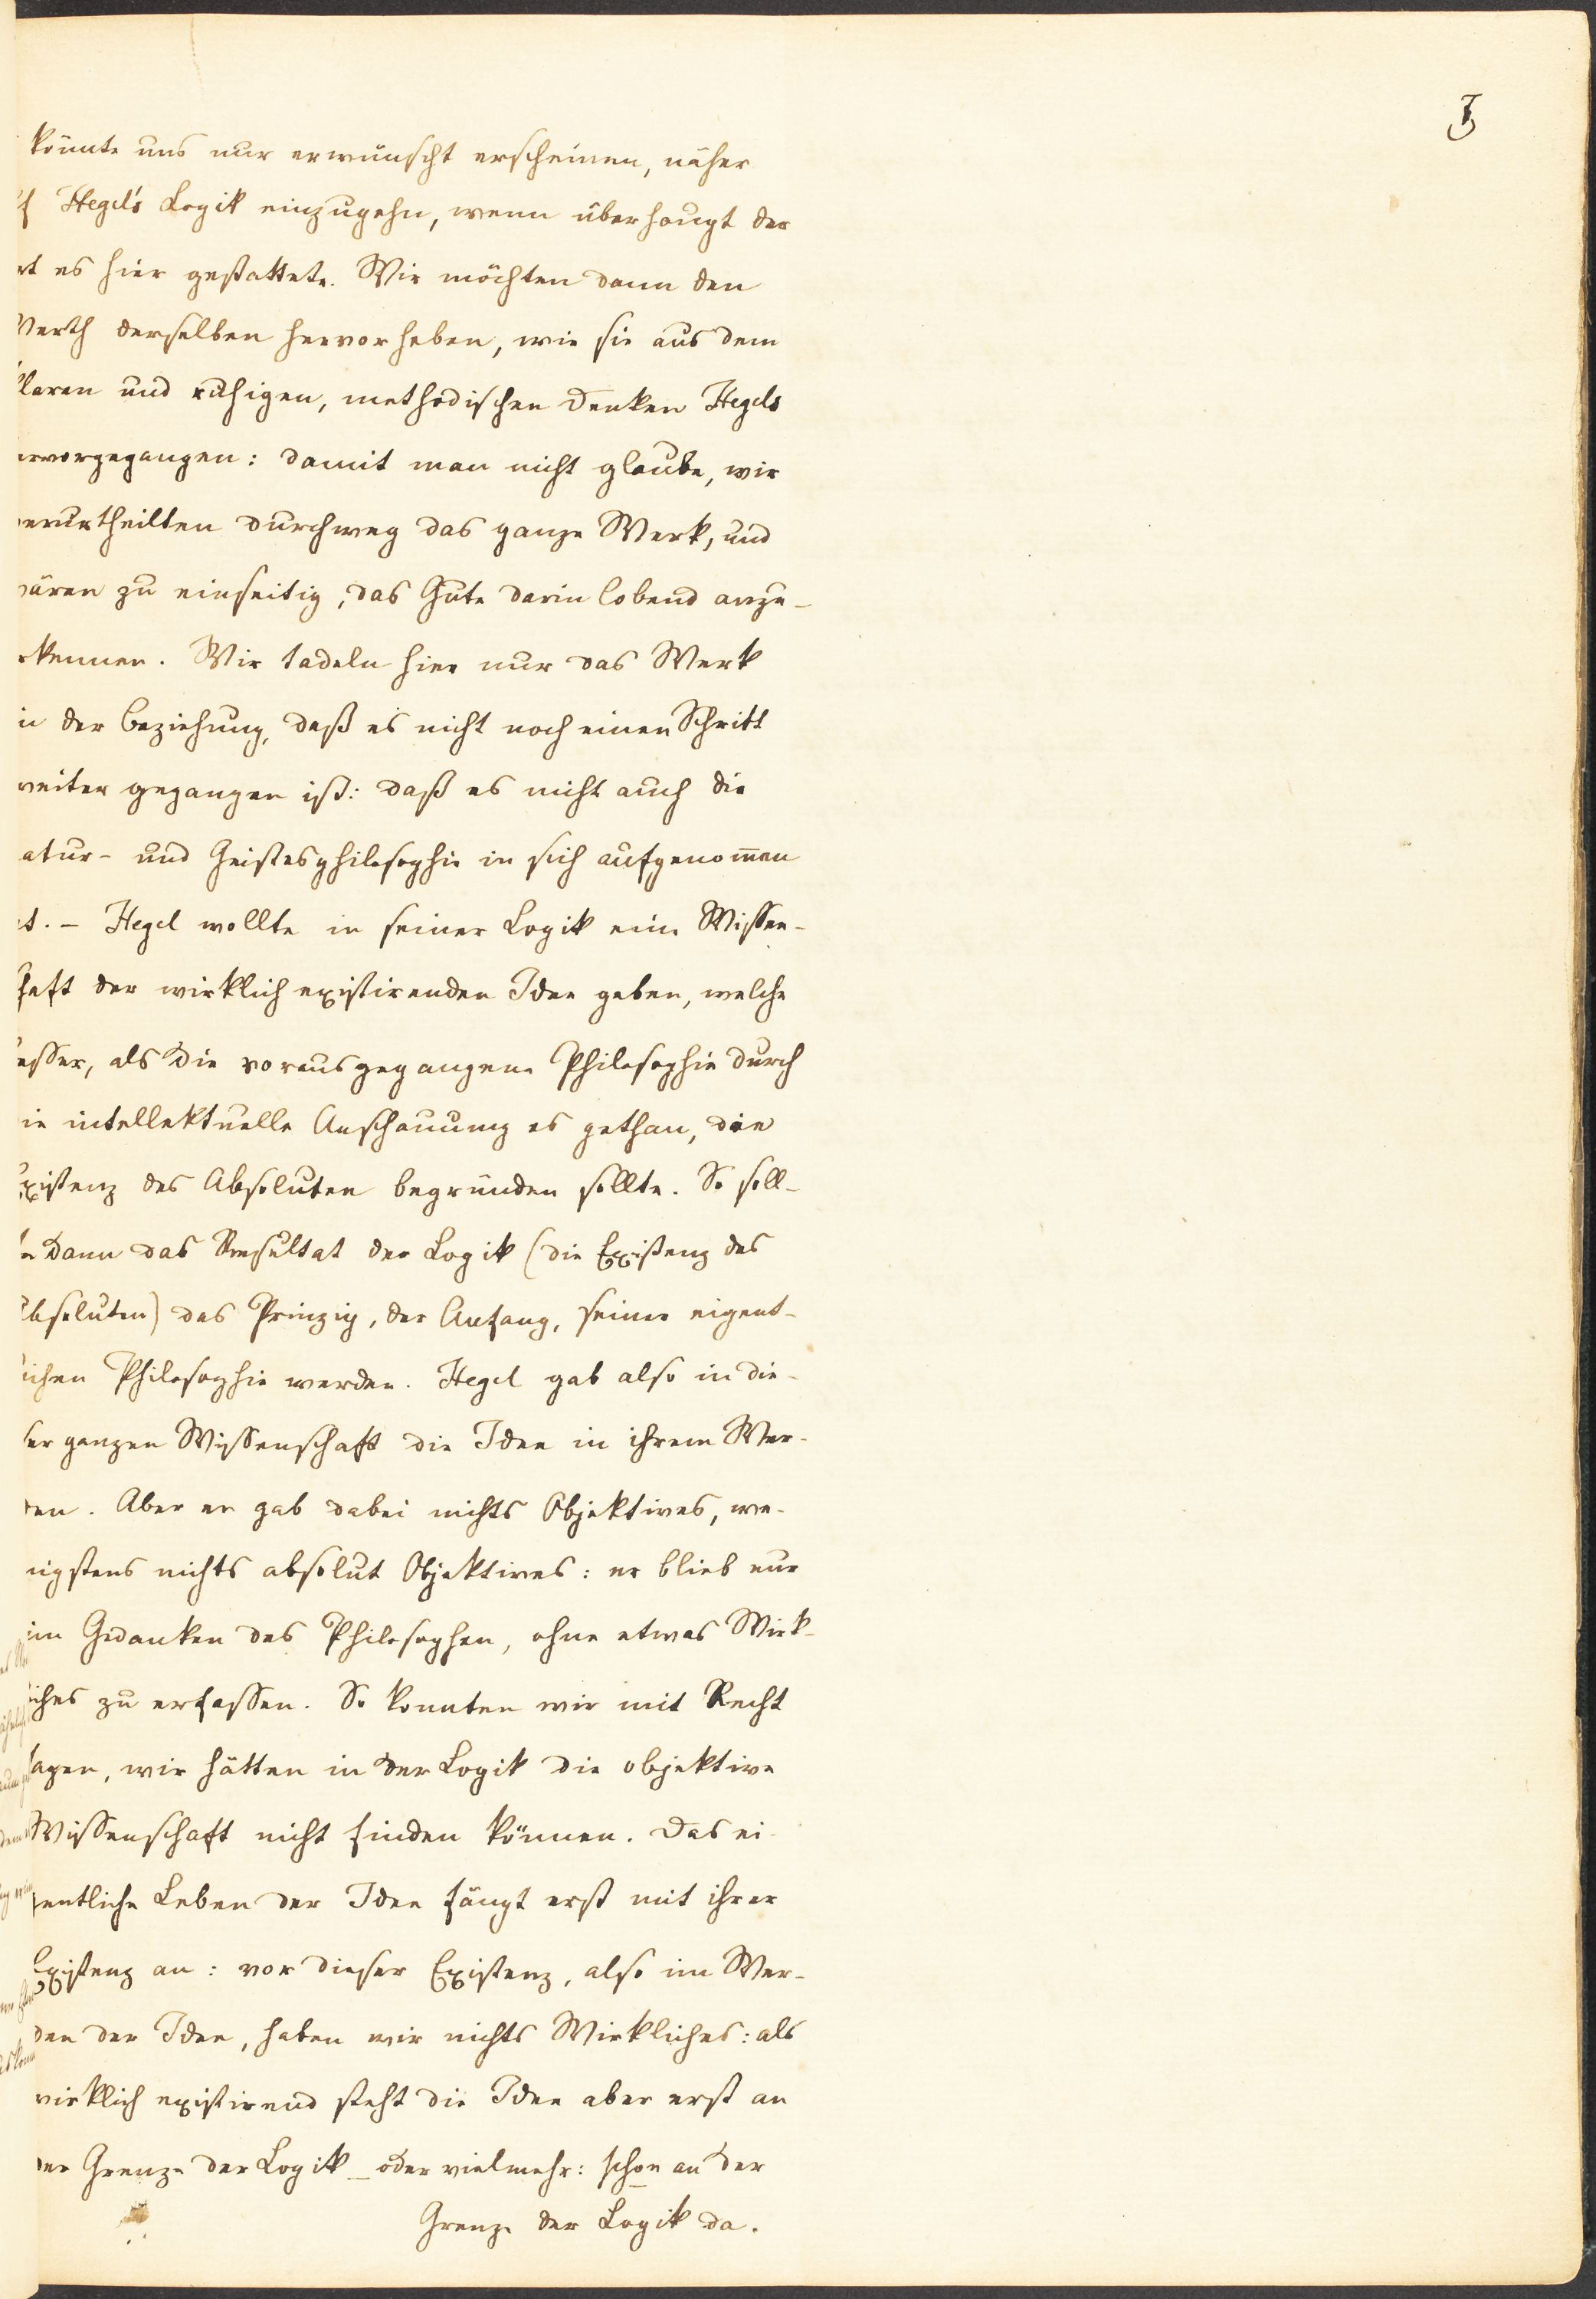 könnte uns nur erwünscht erscheinen, näher
f Hegel's Logik einzugehn, wenn überhaupt der
rt es hier gestattete. Wir möchten dann den
Werth derselben hervorheben, wie sie aus dem
klaren und ruhigen, methodischen Denken Hegels
ervorgegangen: damit man nicht glaube, wir
verurtheilten durchweg das ganze Werk, und
wären zu einseitig, das Gute darin lobend anzu-
rkennen. Wir tadeln hier nur das Werk
in der Beziehung, daß es nicht noch einen Schritt
weiter gegangen ist: daß es nicht auch die
atur- und Geistesphilosophie in sich aufgenom̅en
t. – Hegel wollte in seiner Logik eine Wissen-
haft der wirklich existirenden Idee geben, welche
esser, als die vorausgegangene Philosophie durch
ie intellektuelle Anschauung es gethan, die
xistenz des Absoluten begründen sollte. So soll-
te dann das Resultat der Logik (die Existenz des
Absoluten) das Prinzip, der Anfang, seiner eigent-
lichen Philosophie werden. Hegel gab also in die-
ser ganzen Wissenschaft die Idee in ihrem Wer-
den. Aber er gab dabei nichts Objektives, we-
nigstens nichts absolut Objektives: er blieb nur
im Gedanken des Philosophen, ohne etwas Wirk-
liches zu erfassen. So konnten wir mit Recht
sagen, wir hätten in der Logik die objektive
Wissenschaft nicht finden können. Das ei-
gentliche Leben der Idee fängt erst mit ihrer
Existenz an: vor dieser Existenz, also im Wer-
den der Idee, haben wir nichts Wirkliches: als
wirklich existirend steht die Idee aber erst an
der Grenze der Logik – oder vielmehr: schon an der
Grenze der Logik da.